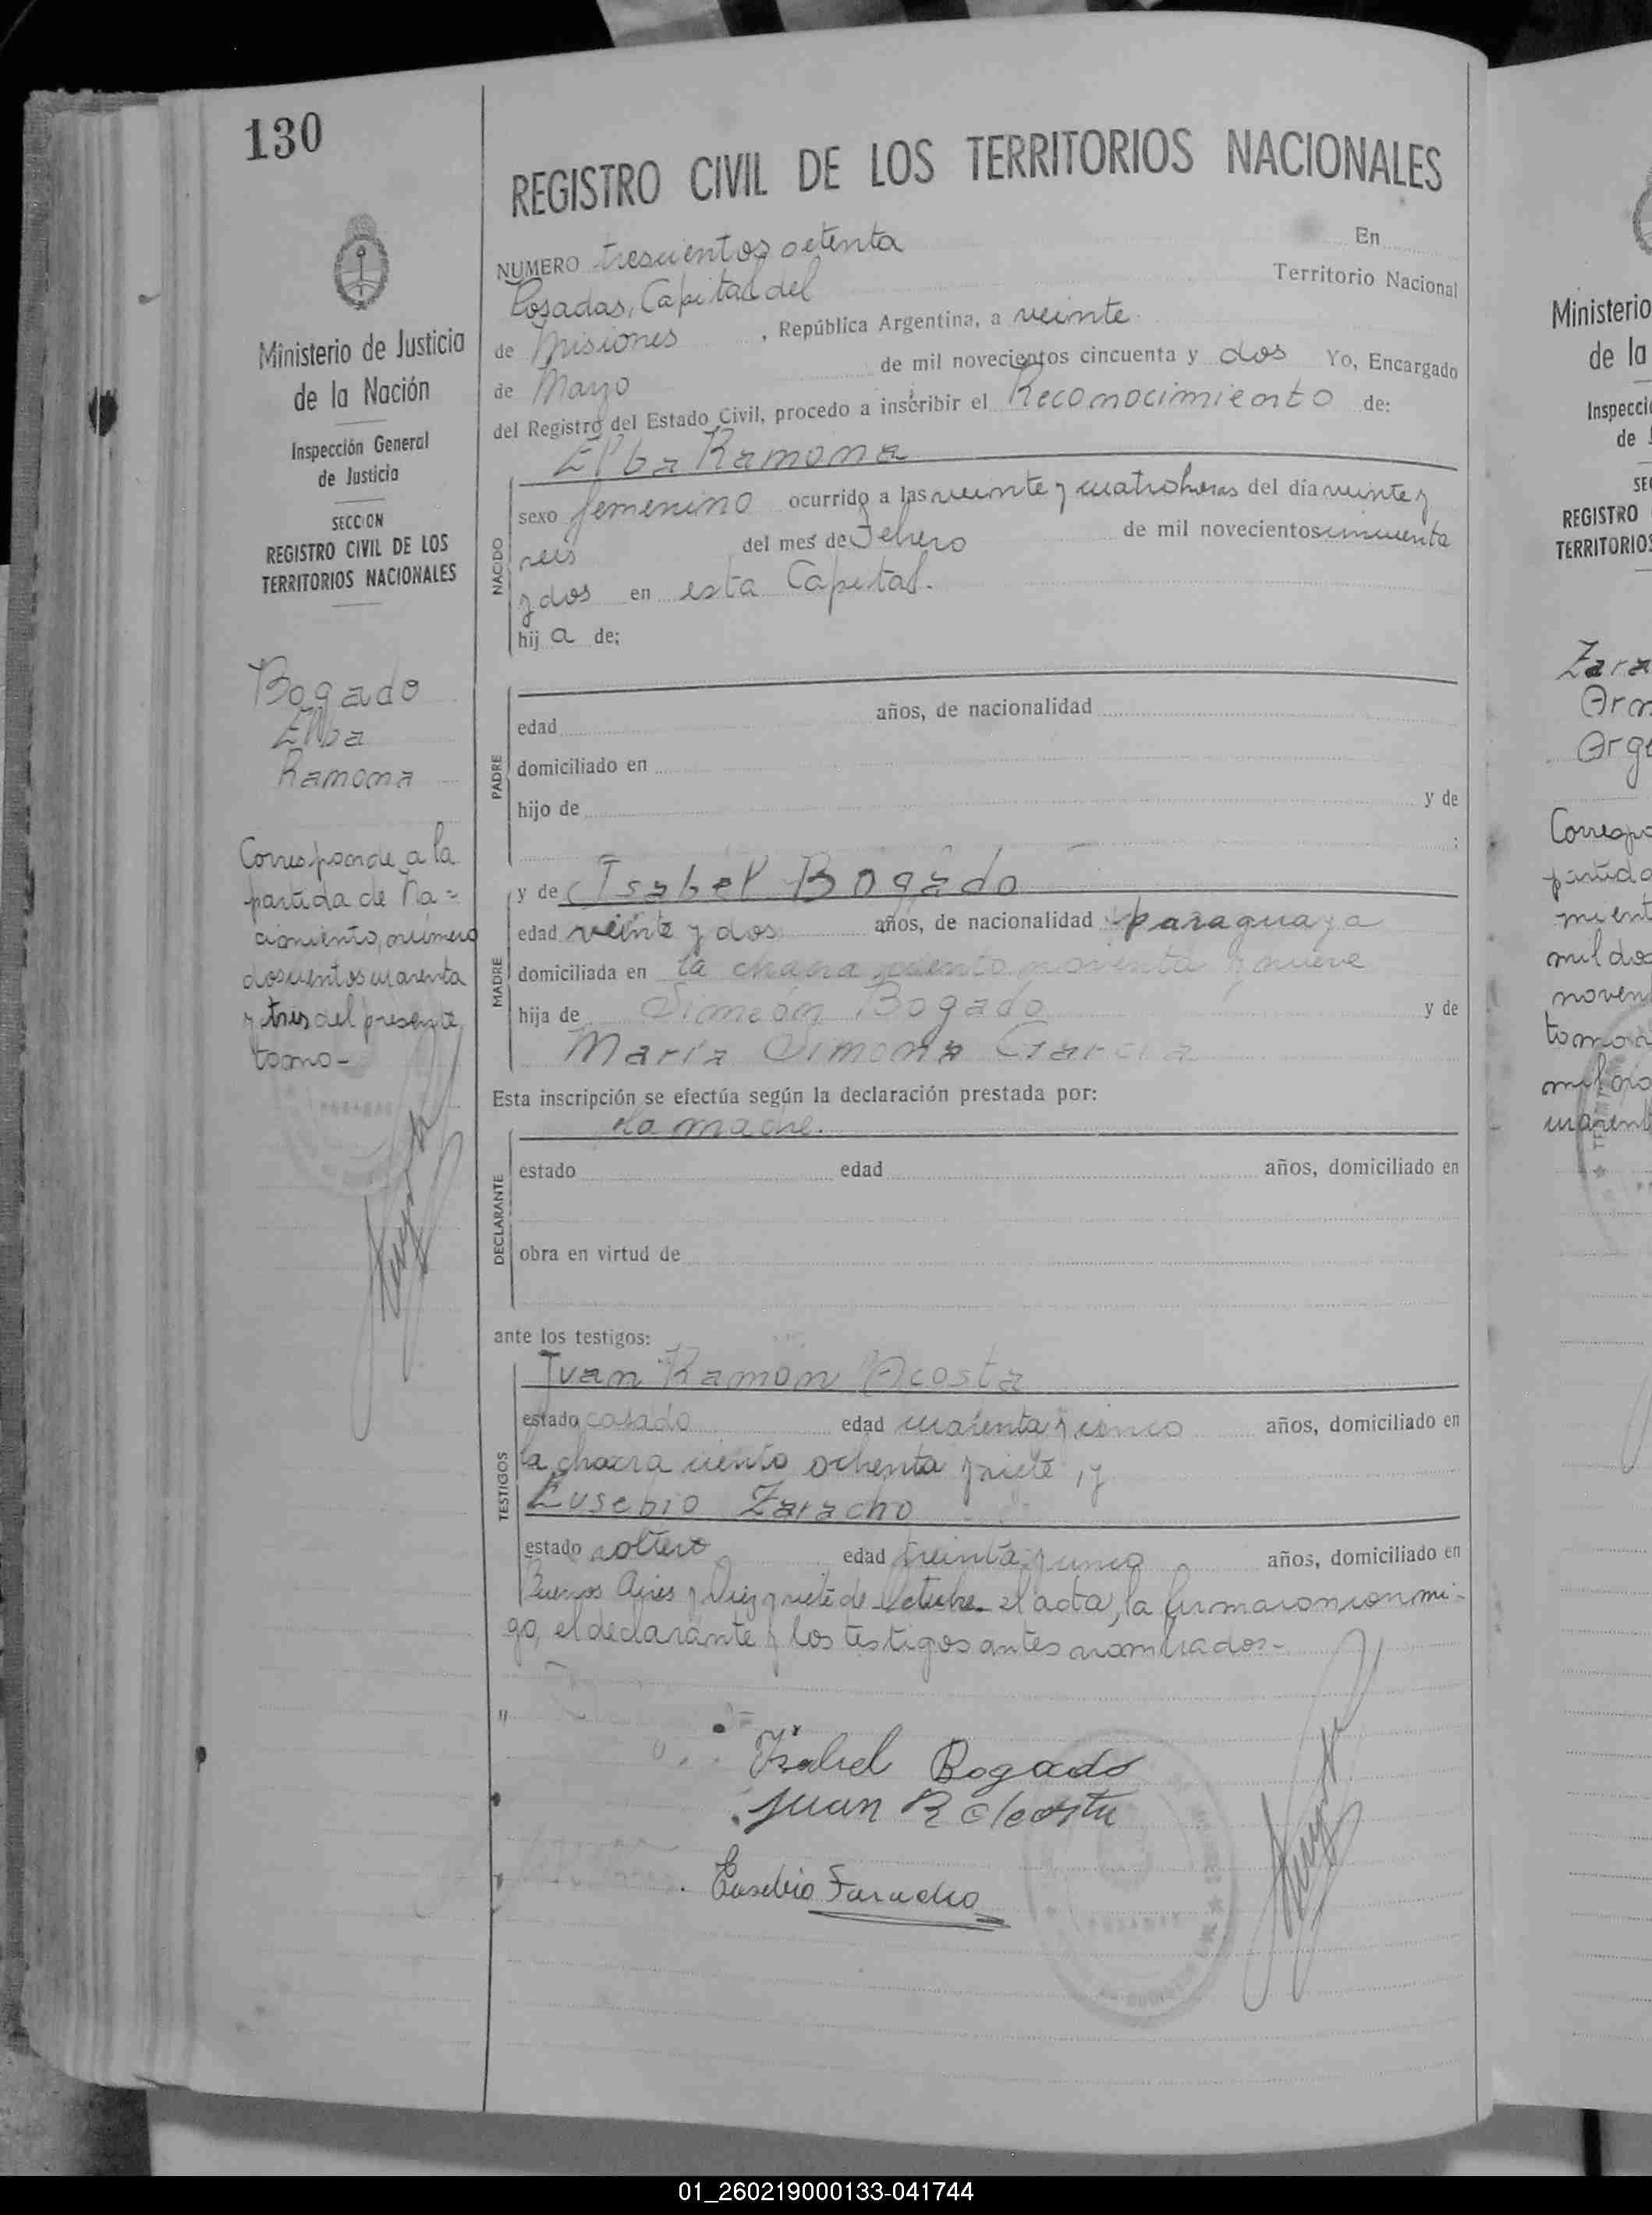 130
REGISTRO CIVIL DE LOS TERRITORIOS NACIONALES
Ministerio de Justicia
de la Nación
Inspección General
de Justicia
SECCION
REGISTRO CIVIL DE LOS
TERRITORIOS NACIONALES
Bogado
Elba
Ramona
Corresponde a la
partida de Na=
cimiento, número
doscientos cuarenta
y tres del presente
tomo-
NUMERO trescientos setenta En
Posadas, Capital del Territorio Nacional
de Misiones , República Argentina, a veinte
de Mayo de mil novecientos cincuenta y dos Yo, Encargado
del Registro del Estado Civil, procedo a inscribir el Reconocimiento de:
Elba Ramona
NACIDO
sexo femenino ocurrido a las veinte y cuatro horas del día veinte y
seis del mes de Febrero de mil novecientos cincuenta
y dos en esta Capital.
hij a de;
PADRE
edad años, de nacionalidad
domiciliado en
hijo de y de
;
MADRE
y de Isabel Bogado
edad veinte y dos años, de nacionalidad paraguaya
domiciliada en la chacra ciento noventa y nueve
hija de Simeón Bogado y de
María Simona Garcia
Esta inscripción se efectúa según la declaración prestada por:
la madre.
DECLARANTE
estado edad años, domiciliado en
obra en virtud de
ante los testigos:
TESTIGOS
Juan Ramón Acosta
estado casado edad cuarenta y cinco años, domiciliado en
la chacra ciento ochenta y siete , y
Eusebio Zaracho
estado soltero edad treinta y años, domiciliado en
Buenos Aires y Diez y siete de Octubre el acta, la firmaron conmi-
go, el declarante y los testigos antes nombrados-
Isabel Bogado
Juan R Acosta
Eusebio Saracho
Ministerio
de la
Inspecci
de J
SE
REGISTRO
TERRITORIOS
Zara
Corresp
partida
mient
mil dos
noven
tomo
01_260219000133-041744